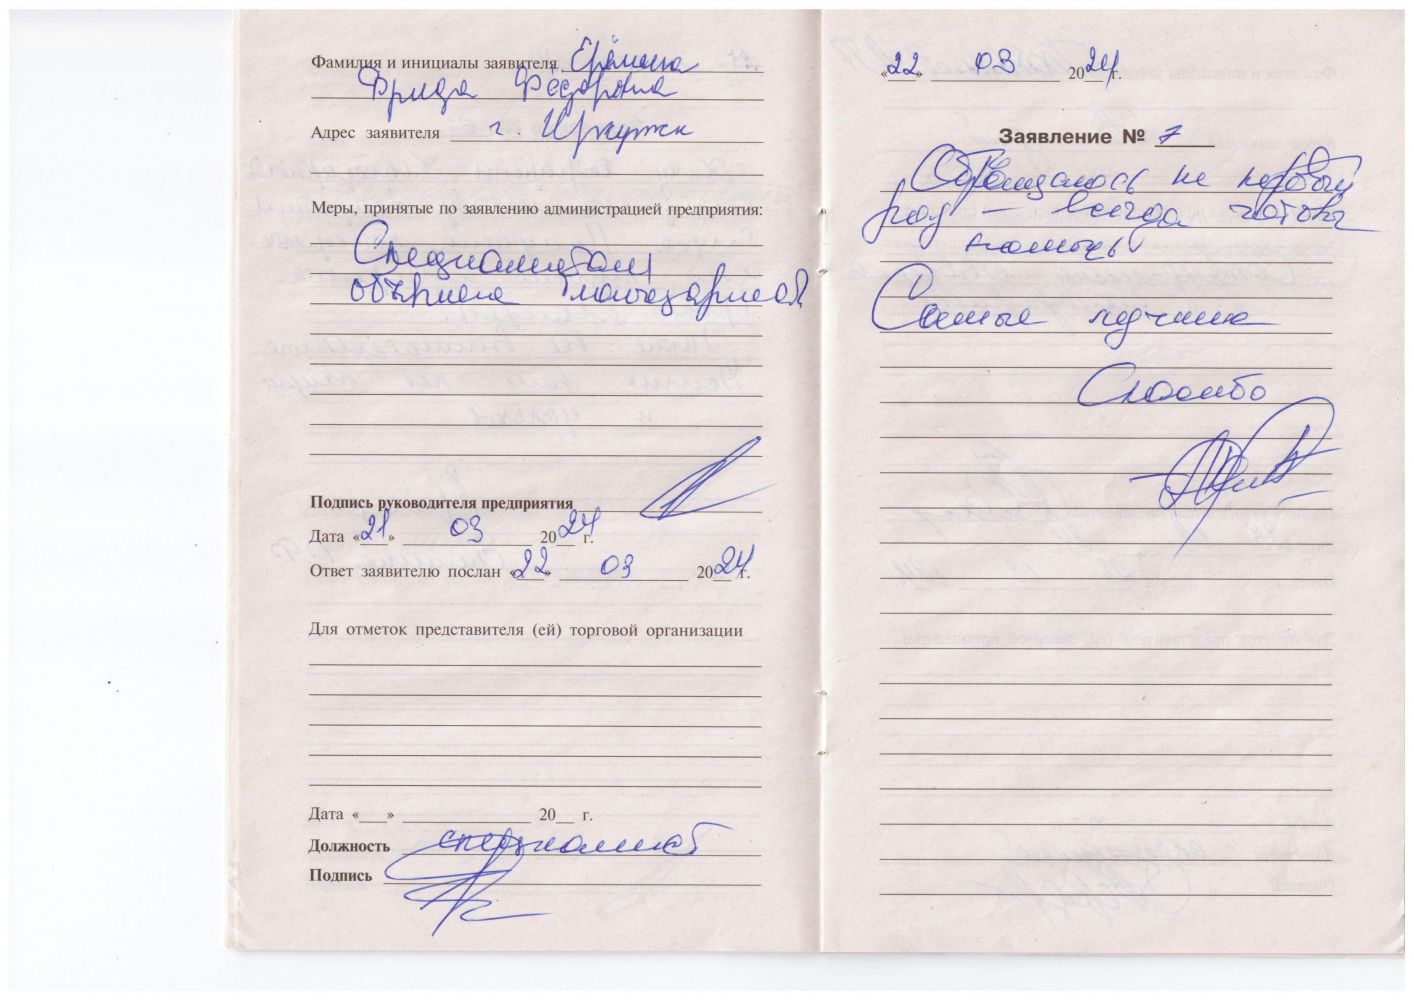 Фамилия и инициалы заявителя Ерёмина
Фрида Фёдоровна
Адрес заявителя г. Иркутск
Меры, принятые по заявлению администрацией предприятия:
Специалистам
объявлена благодарность
Подпись руководителя предприятия
Дата «21» 03 2024 г.
Ответ заявителю послан «22» 03 2024 г.
Для отметок представителя (ей) торговой организации
Дата «___» ____________ 20__ г.
Должность специалист
Подпись
«22» 03 2024 г.
Заявление № 7
Обращаюсь не первый
раз – всегда готовы
помочь
Самые лучшие
Спасибо